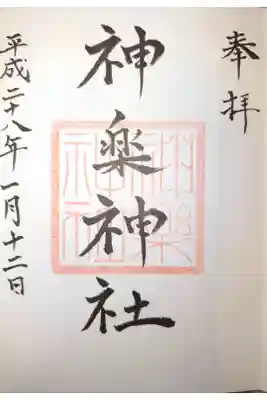 奉拝
神楽神社
平成二十八年一月十二日